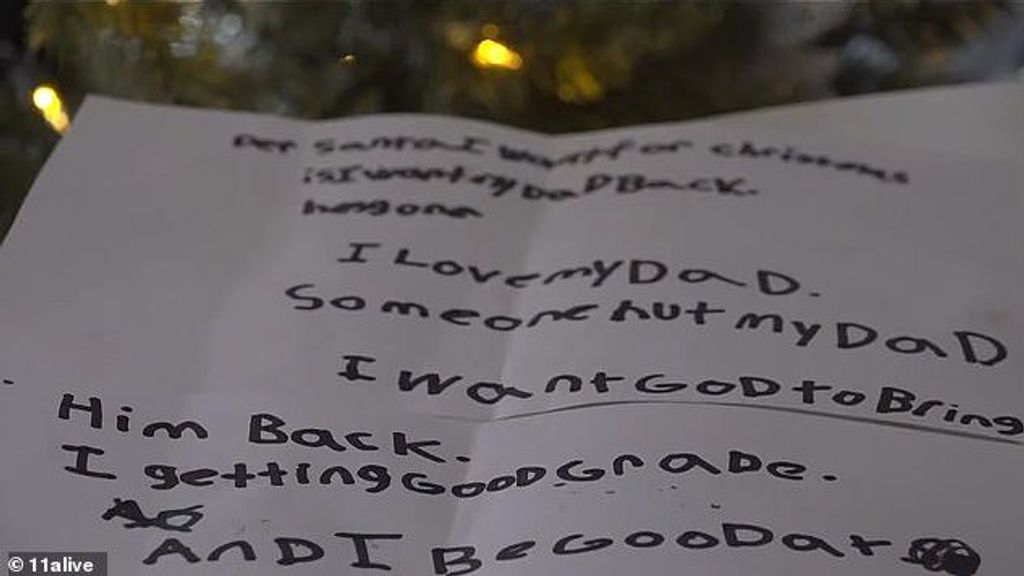 Der santa I want for christmas
is I want my DaD Back.
hes gone
I Love my DaD.
Someone hut my DaD
I want GoD to Bring
Him Back.
I getting GOOD GraDe.
AnD I Be GooD at
© 11alive